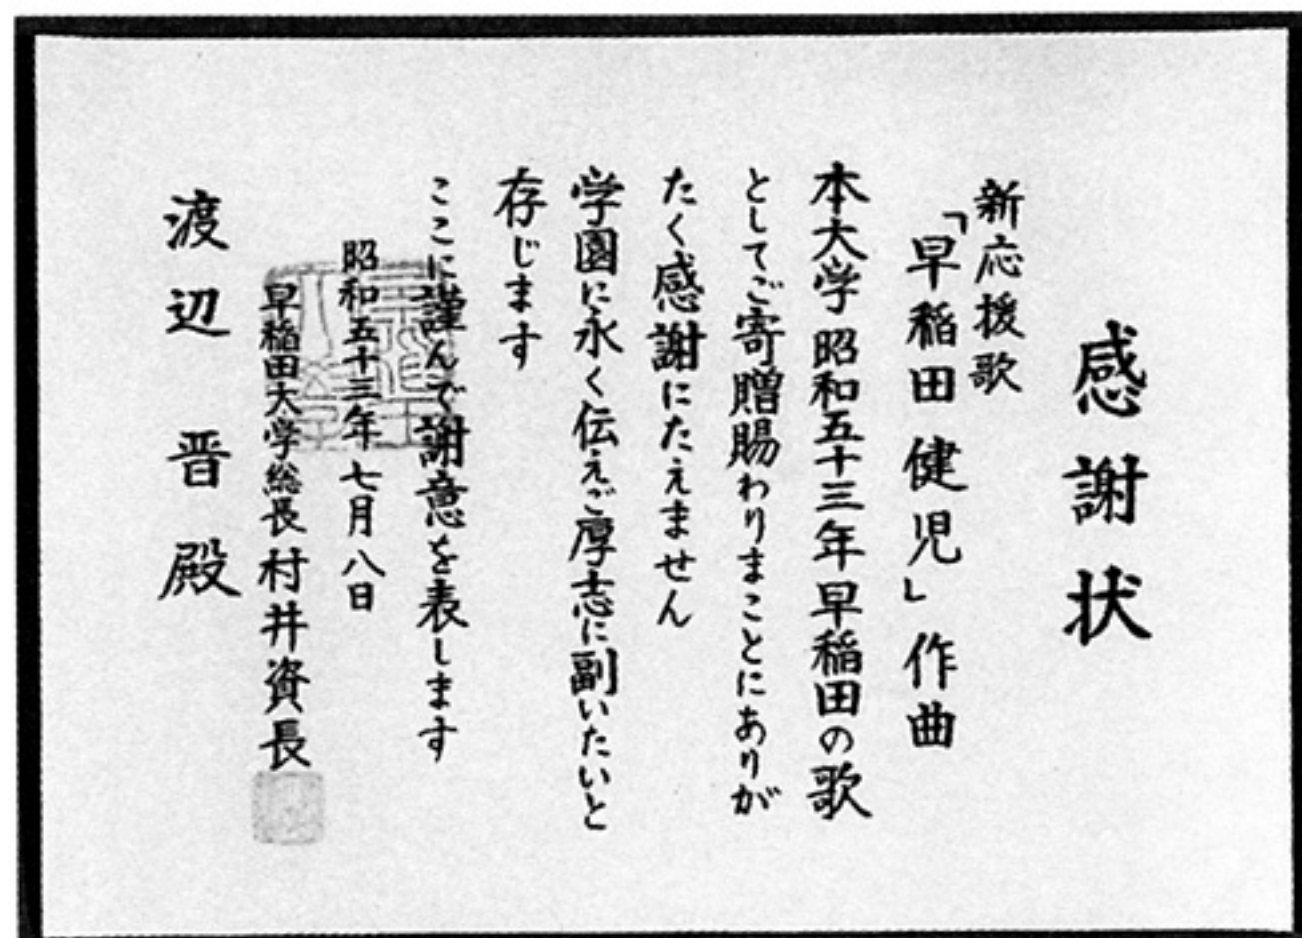 感謝状
新応援歌
「早稲田健児」作曲
本大学昭和五十三年早稲田の歌
としてご寄贈賜わりまことにありが
たく感謝にたえません
学園に永く伝えご厚志に副いたいと
存じます
ここに謹んで謝意を表します
昭和五十三年七月八日
早稲田大学総長村井資長
渡辺晋殿